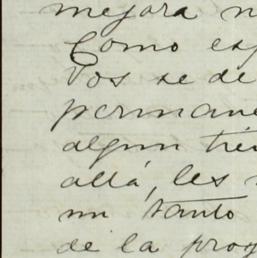 mejora n
Como esp
Vos se de
permane
algun tie
allá, les
un tanto
de la prog